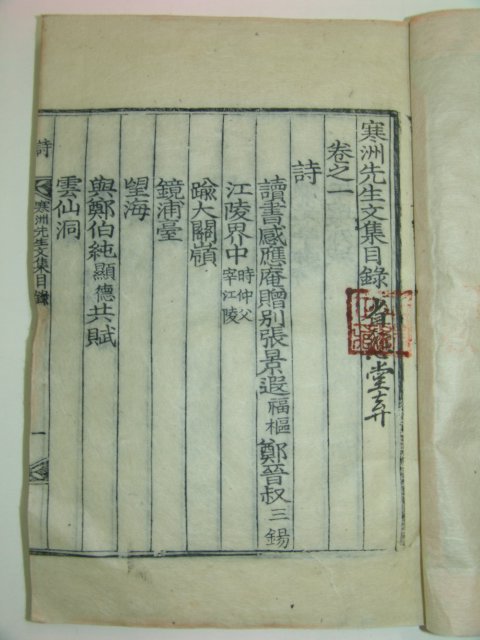 寒洲先生文集目錄
堂弆
卷之一
詩
讀書感應庵贈別張景遐福樞鄭晉叔三錫
江陵界中時仲父宰江陵
踰大關嶺
鏡浦臺
望海
與鄭伯純顯德共賦
雲仙洞
詩
寒洲先生文集目錄
一